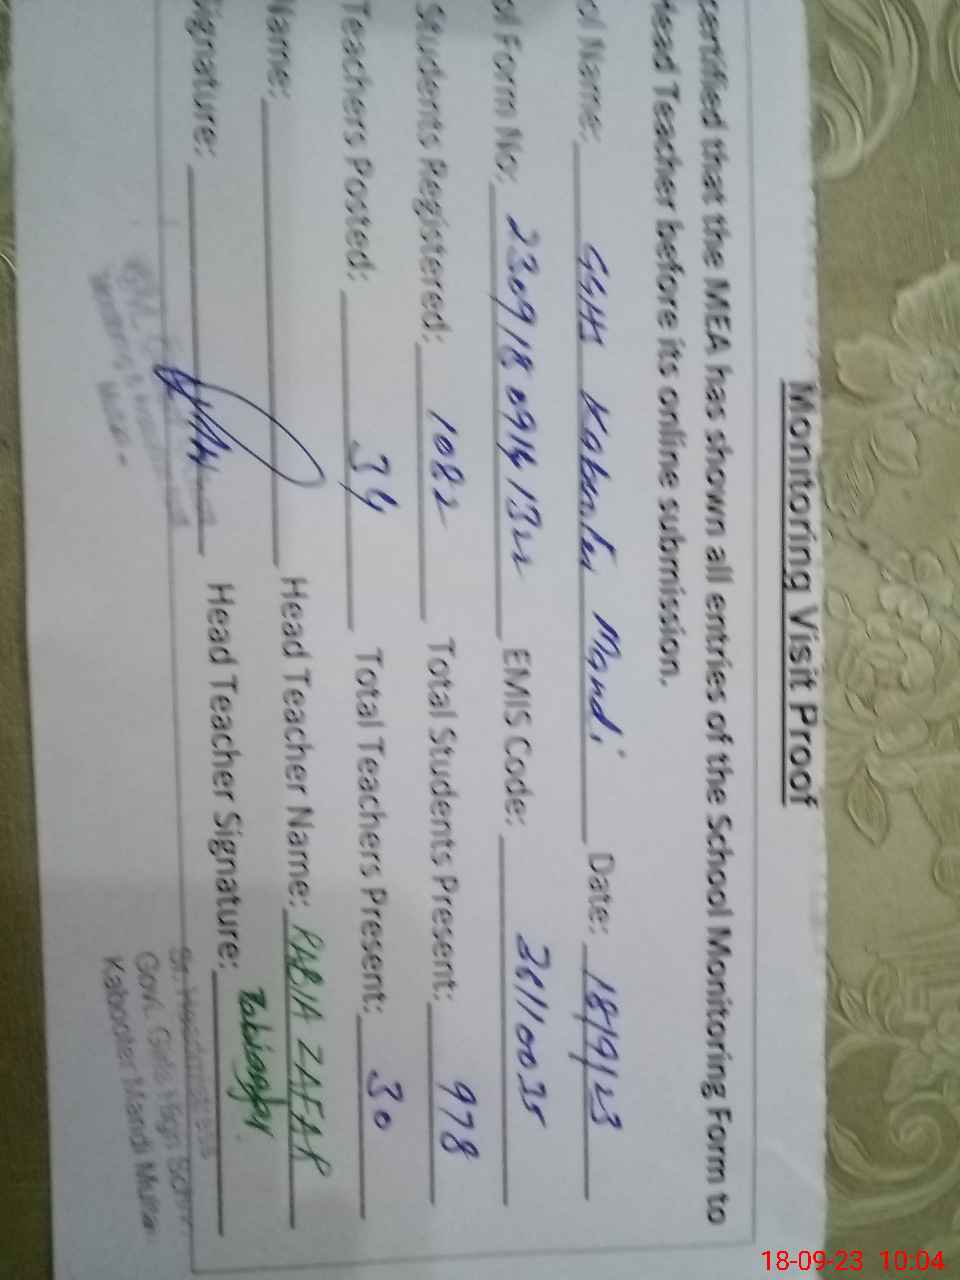 Monitoring Visit Proof
certified that the MEA has shown all entries of the School Monitoring Form to
Head Teacher before its online submission.
ol Name: GGHS Kabooter Mandi Date: 18/9/23
ol Form No: EMIS Code: 36110035
Students Registered: 1082 Total Students Present: 978
Teachers Posted: 34 Total Teachers Present: 30
Name: Head Teacher Name: RABIA ZAFAR
Signature: Head Teacher Signature:
Sr. Headmistress
Govt. Girls High School
Kabooter Mandi Multan
18-09-23 10:04